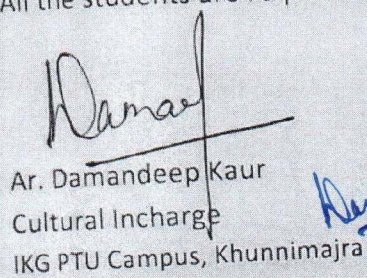 All the students are
Ar. Damandeep Kaur
Cultural Incharge
IKG PTU Campus, Khunnimajra